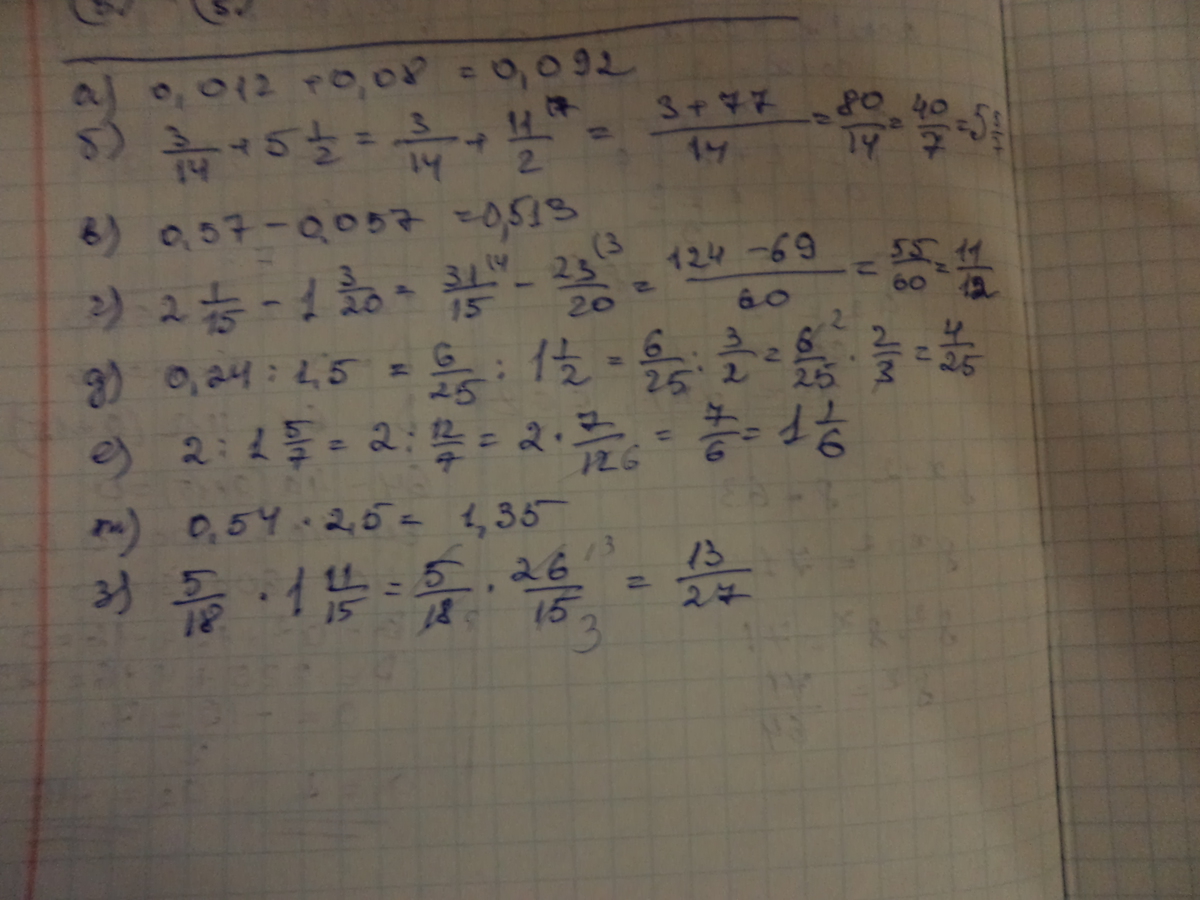 а) 0,012 + 0,08 = 0,092
б) 3/14 + 5 1/2 = 3/14 + 11/2 (7 = (3 + 77)/14 = 80/14 = 40/7 = 5 5/7
в) 0,57 - 0,057 = 0,513
г) 2 1/15 - 1 3/20 = 31/15 (4 - 23/20 (3 = (124 - 69)/60 = 55/60 = 11/12
д) 0,24 : 1,5 = 6/25 : 1 1/2 = 6/25 : 3/2 = 6/25 2 · 2/3 = 4/25
е) 2 : 1 5/7 = 2 : 12/7 = 2 · 7/12 6 = 7/6 = 1 1/6
ж) 0,54 · 2,5 = 1,35
з) 5/18 · 1 11/15 = 5/18 · 26/15 13 3 = 13/27